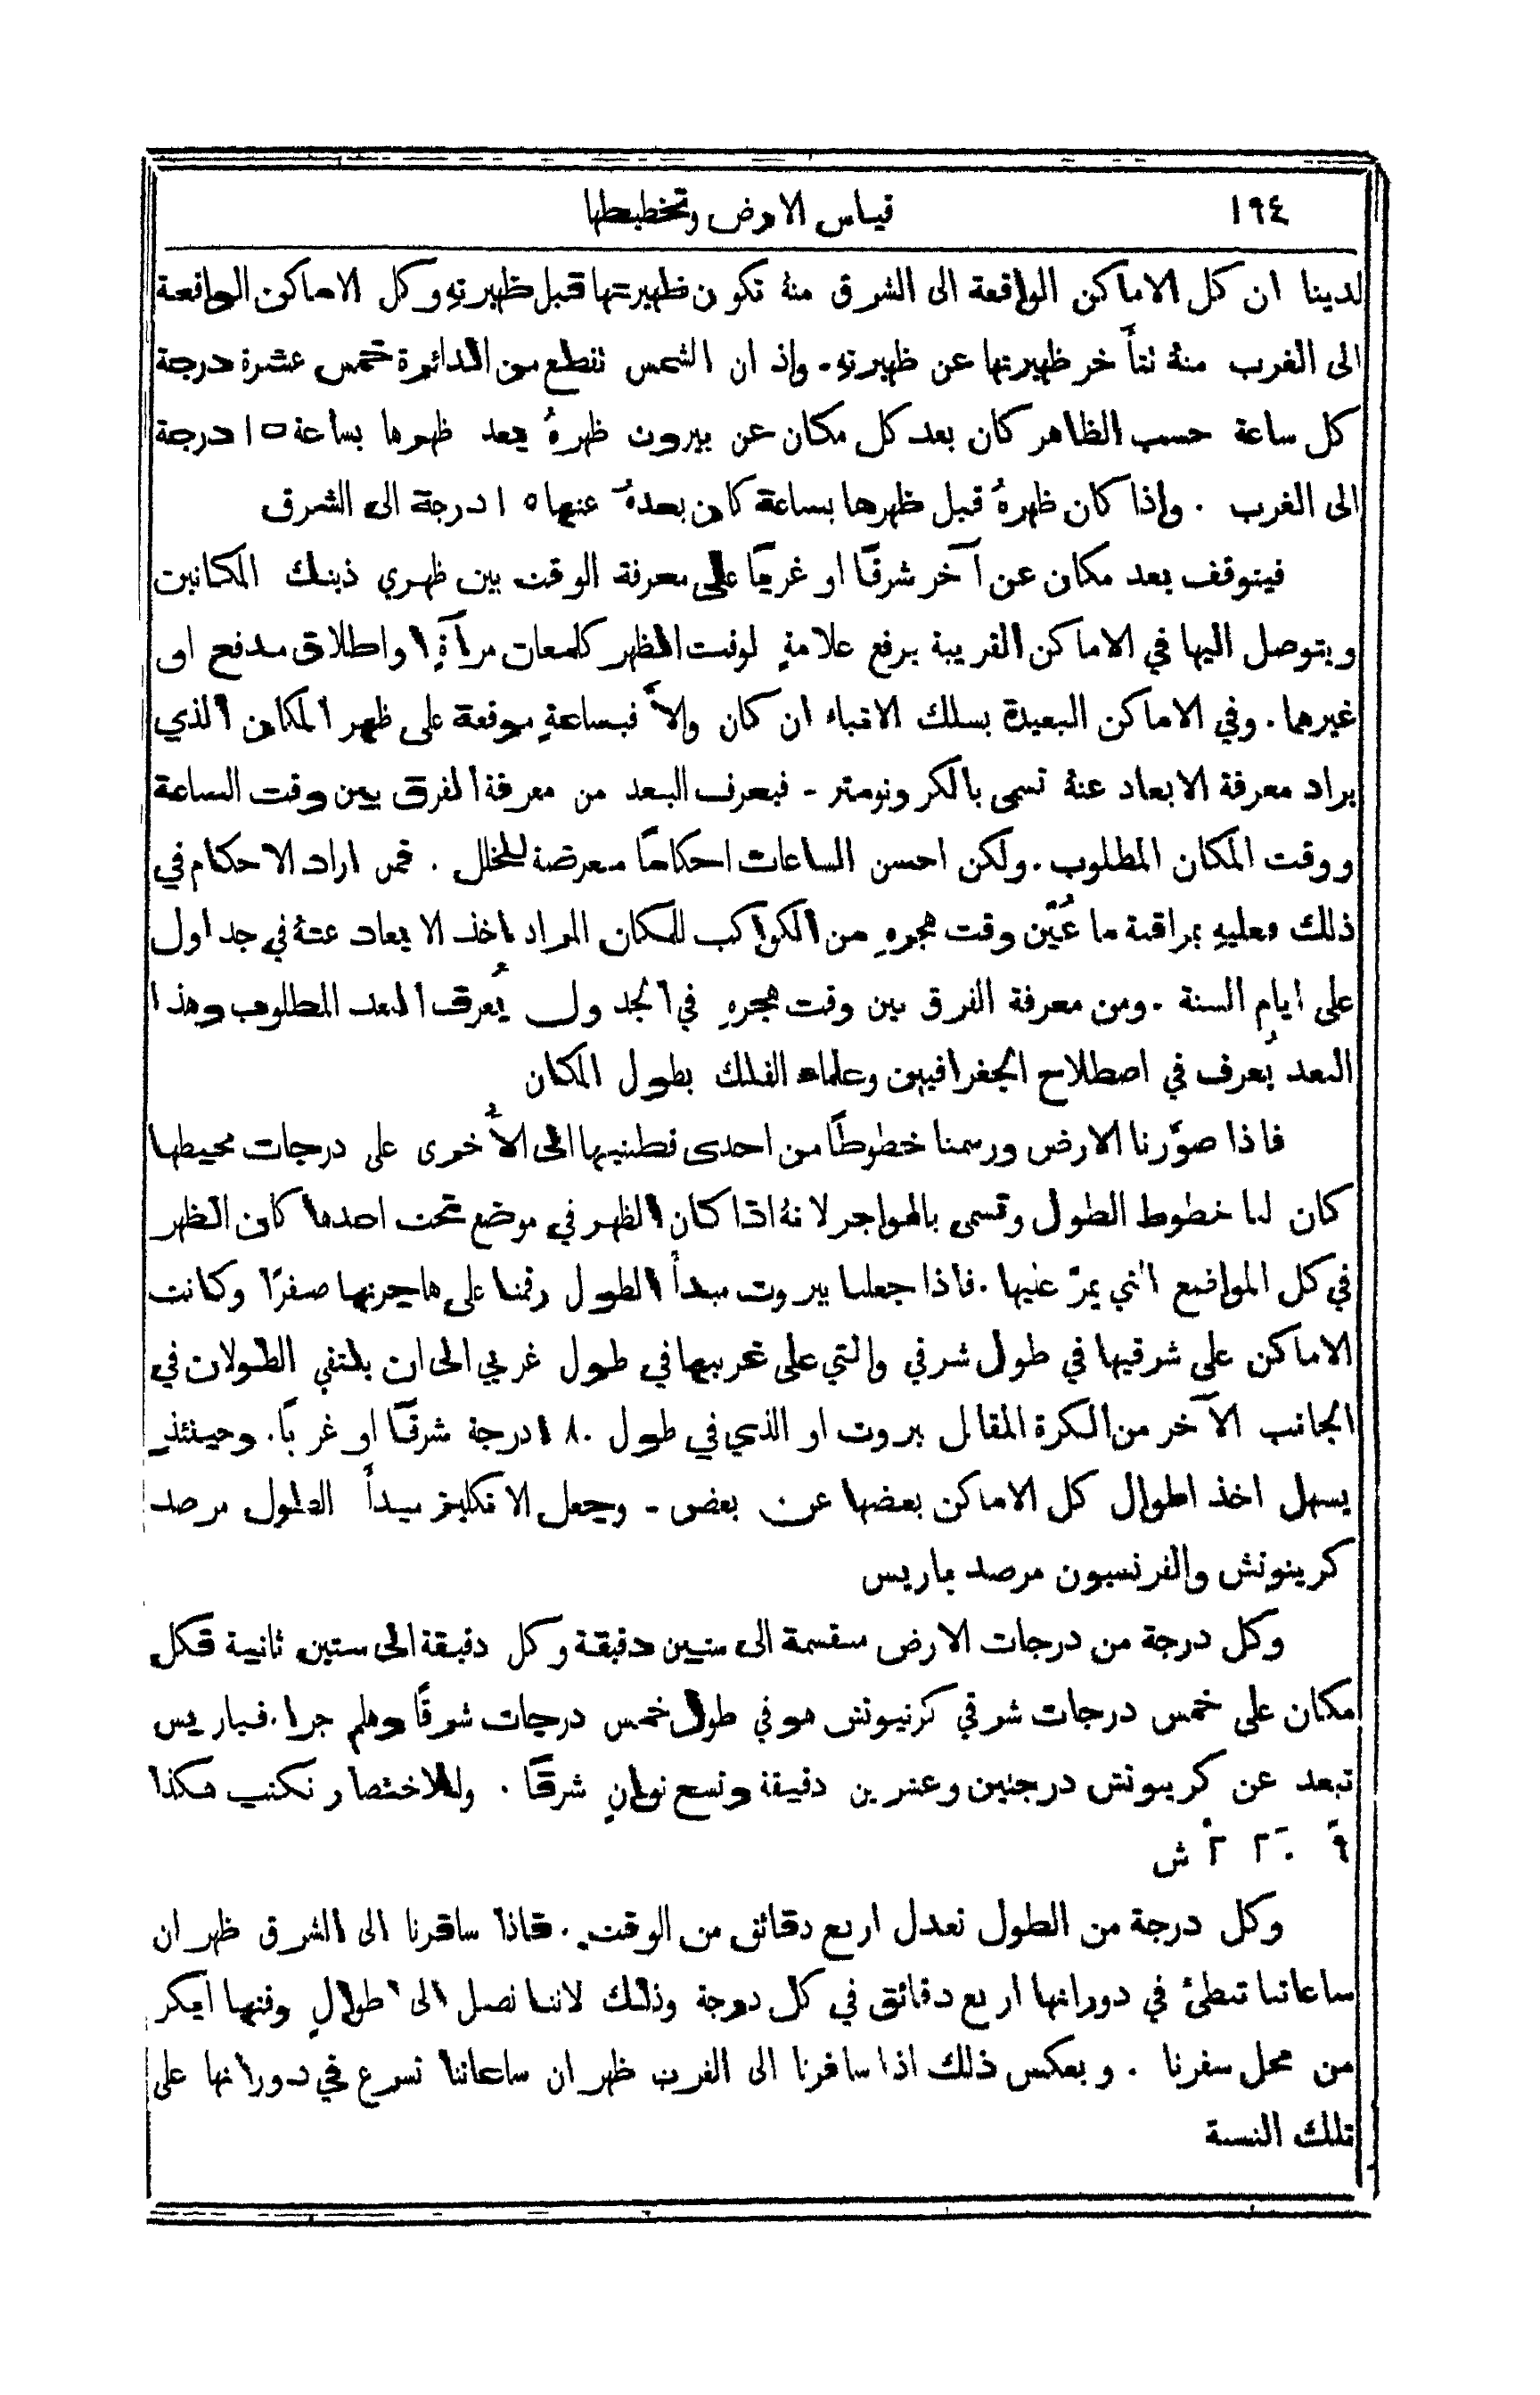 ١٩٤ قياس الارض وتخطيطها
لدينا ان كل الاماكن الواقعة الى الشرق منهُ تكون ظهيرتها قبل ظهيرتهِ وكل الاماكن الواقعة
الى الغرب منهُ تتأخر ظهيرتها عن ظهيرتهِ. واذ ان الشمس تقطع من الدائرة خمس عشرة درجة
كل ساعة حسب الظاهر كان بعد كل مكان عن بيروت ظهرهُ بعد ظهرها بساعة ١٥ درجة
الى الغرب . واذا كان ظهرهُ قبل ظهرها بساعة كان بعدهُ عنها ١٥ درجة الى الشرق
فيتوقف بعد مكان عن آخر شرقًا او غربًا على معرفة الوقت بين ظهري ذينك المكانين
ويتوصل اليها في الاماكن القريبة برفع علامةٍ لوقت الظهر كلمعان مرآةٍ او اطلاق مدفع او
غيرهما. وفي الاماكن البعيدة بسلك الانباء ان كان والاَّ فبساعةٍ موقعة على ظهر المكان الذي
يراد معرفة الابعاد عنهُ تسمى بالكرونومتر - فيعرف البعد من معرفة الفرق بين وقت الساعة
ووقت المكان المطلوب. ولكن احسن الساعات احكامًا معرضة للخلل . فمن اراد الاحكام في
ذلك فعليهِ بمراقبة ما عُيّن وقت هجرهِ من الكواكب للمكان المراد اخذ الابعاد عنهُ في جداول
على ايام السنة . ومن معرفة الفرق بين وقت هجرهِ في الجدول يُعرف البعد المطلوب وهذا
البعد يُعرف في اصطلاح الجغرافيين وعلماء الفلك بطول المكان
فاذا صوَّرنا الارض ورسمنا خطوطًا من احدى قطبتيها الى الأُخرى على درجات محيطها
كان لنا خطوط الطول وتسمى بالهواجر لانهُ اذا كان الظهر في موضع تحت احدها كان الظهر
في كل المواضع التي يمرّ عليها . فاذا جعلنا بيروت مبدأ الطول رقمنا على هاجرتها صفرًا وكانت
الاماكن على شرقيها في طول شرقي والتي على غربيها في طول غربي الى ان يلتقي الطولان في
الجانب الآخر من الكرة المقابل بيروت او الذي في طول ١٨٠ درجة شرقًا او غربًا. وحينئذٍ
يسهل اخذ اطوال كل الاماكن بعضها عن بعض - وجعل الانكليز مبدأ الطول مرصد
كرينوتش والفرنسيون مرصد باريس
وكل درجة من درجات الارض مقسمة الى ستين دقيقة وكل دقيقة الى ستين ثانية فكل
مكان على خمس درجات شرقي كرنيوتش هو في طول خمس درجات شرقًا وهلم جرا. فباريس
تبعد عن كرينوتش درجتين وعشرين دقيقة وتسع ثوانٍ شرقًا . وللاختصار نكتب هكذا
٩ ٢٠ ٢ ش
وكل درجة من الطول تعدل اربع دقائق من الوقت . فاذا سافرنا الى الشرق ظهر ان
ساعاتنا تبطئ في دورانها اربع دقائق في كل درجة وذلك لاننا نصل الى اطوالٍ وقتها ابكر
من محل سفرنا . وبعكس ذلك اذا سافرنا الى الغرب ظهر ان ساعاتنا تسرع في دورانها على
تلك النسبة